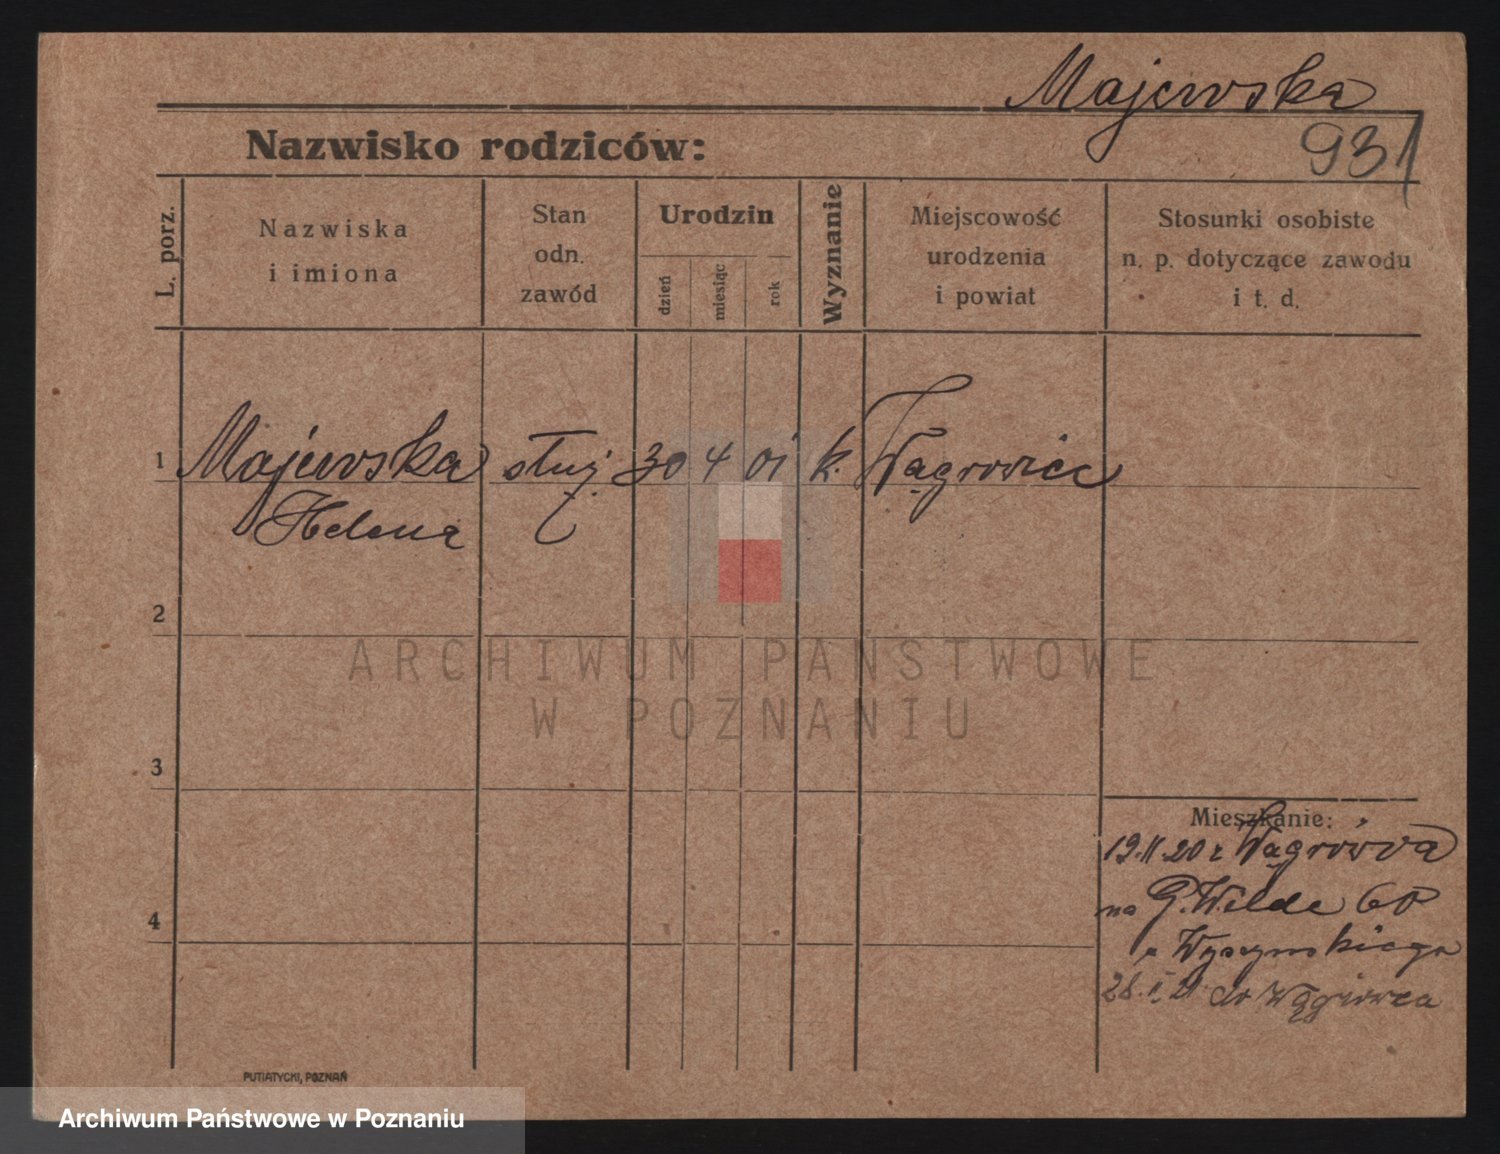 Majewska
931
Nazwisko rodziców:
L. porz.
Nazwiska
i imiona
Stan
odn.
zawód
Urodzin
dzień
miesiąc
rok
Wyznanie
Miejscowość
urodzenia
i powiat
Stosunki osobiste
n. p. dotyczące zawodu
i t. d.
1 Majewska służ. 30 4 01 k. Wągrowiec
Helena
2
ARCHIWUM PAŃSTWOWE
W POZNANIU
3
Mieszkanie:
19.II.20 z Wągrówca
na G. Wilde 60
u Wyszyńskiego
4
28.I.21 do Wągrówca
PUTIATYCKI, POZNAŃ
Archiwum Państwowe w Poznaniu